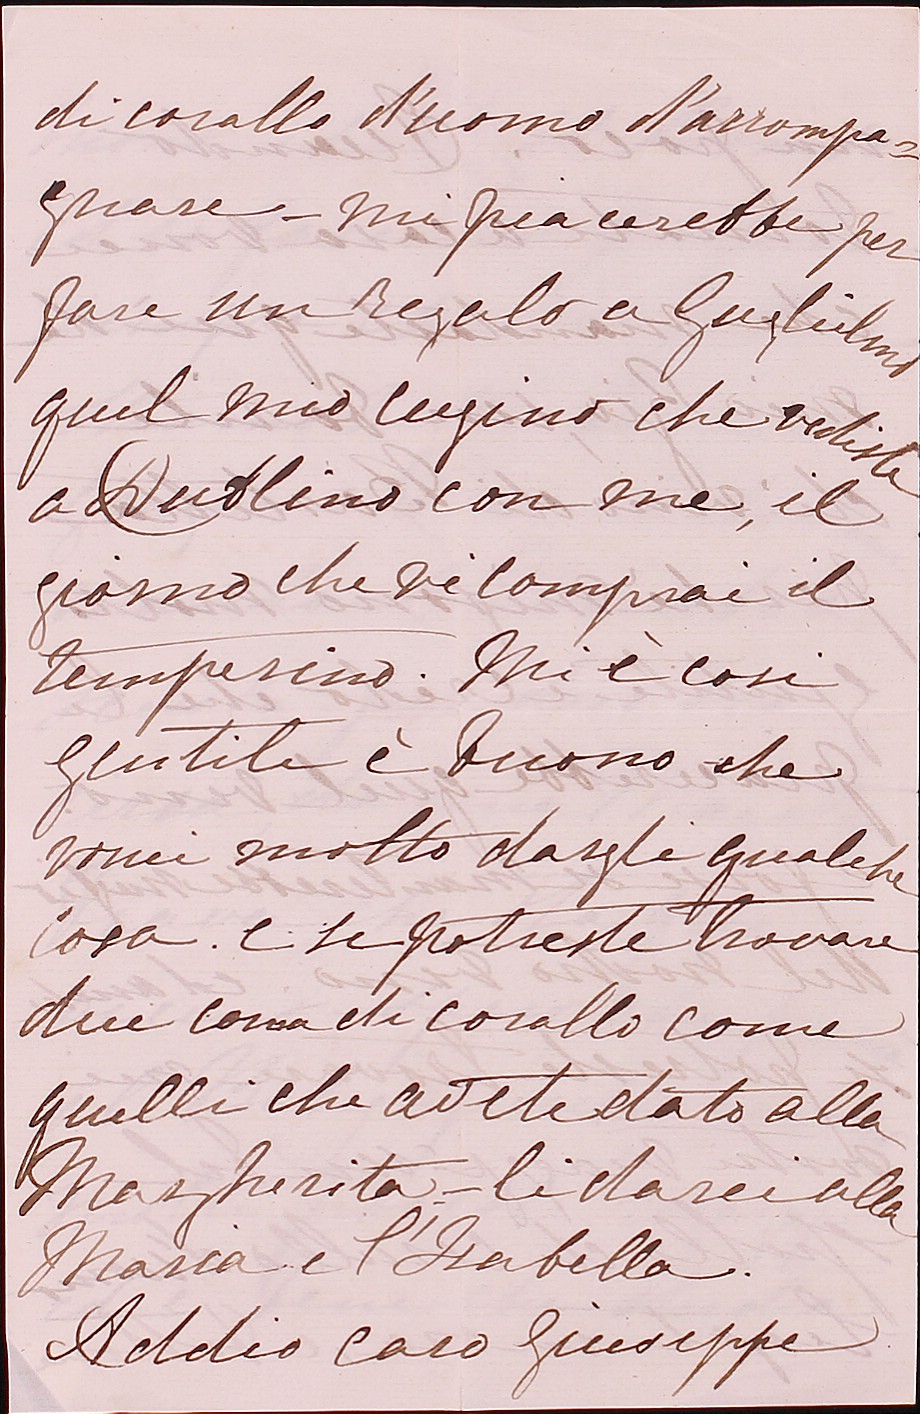 di corallo d'uomo d'accompa=
gnare – mi piacerebbe per
fare un Regalo a Guglielmo
quel mio cugino che vediste
a Dublino con me, il
giorno che vi comprai il
temperino. Mi è cosi
gentile è buono che
vorrei molto dargli qualche
cosa. e se potreste trovare
due corna di corallo come
quelli che avete dato alla
Margherita – li darei alla
Maria e l'Isabella.
Addio caro Giuseppe